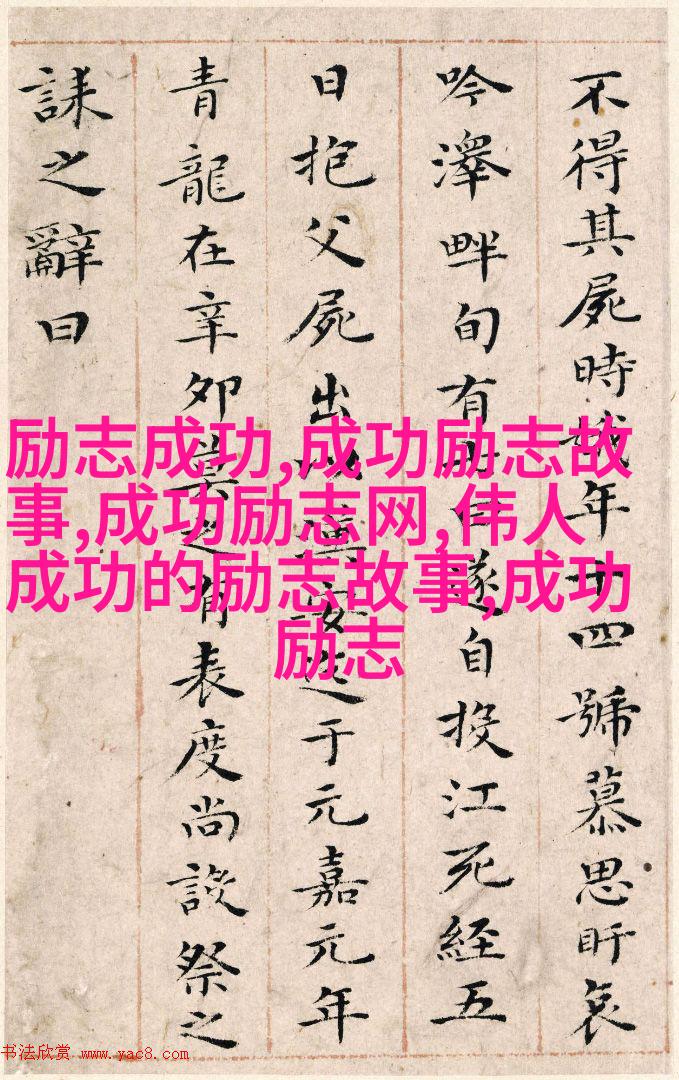 不得其屍時娥年十四號慕思盱哀
吟澤畔旬有七日遂自投江死經五
日抱父屍出以漢安迄于元嘉元年
青龍在辛夘莫之有表度尚設祭之
誄之辭曰
励志成功,成功励志故
事,成功励志网,伟人
成功的励志故事,成功
励志
书法欣赏 www.yac8.com